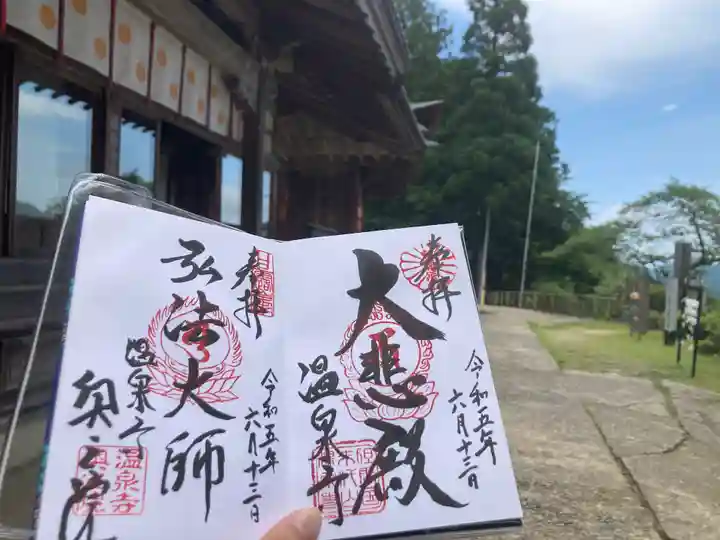 奉拝
令和五年
六月十三日
大悲殿
温泉寺
奉拝
令和五年
六月十三日
弘法大師
温泉寺
奥之院
温泉寺
奥之院